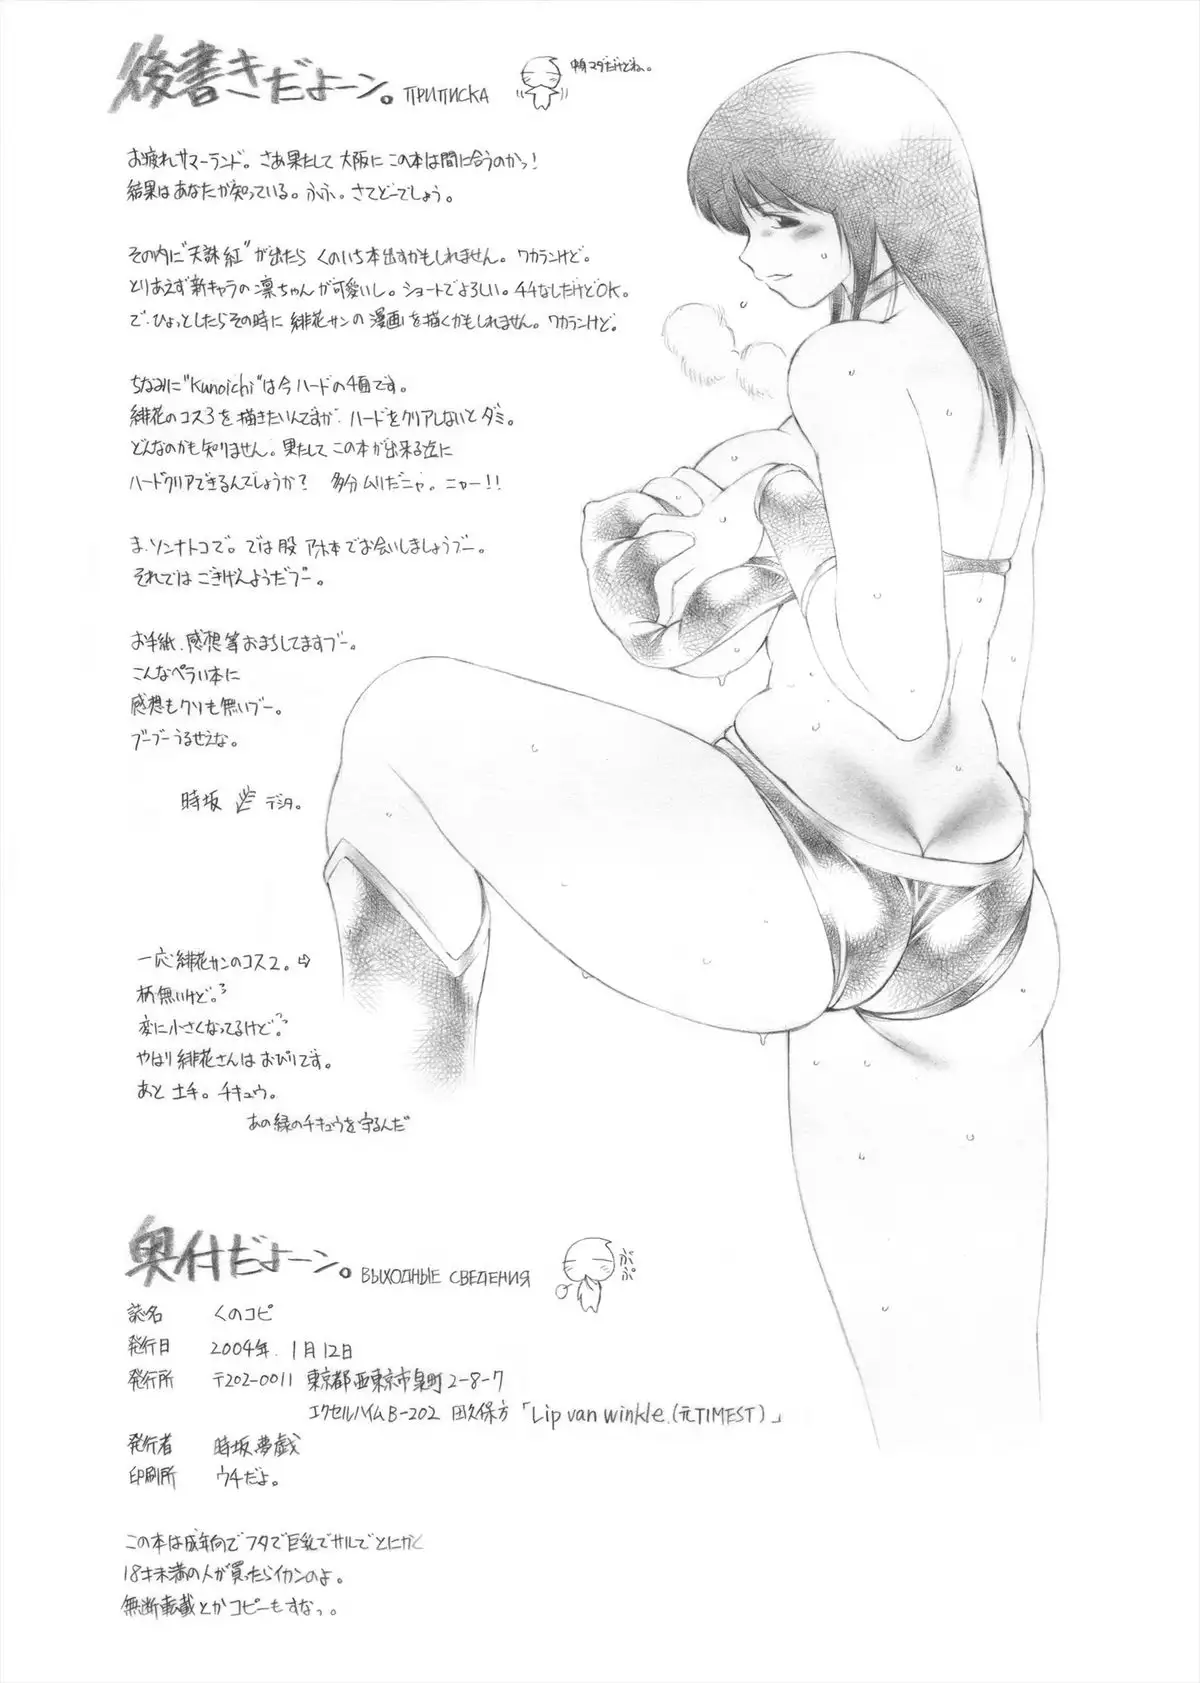 後書きだよーン。 ПРИПИСКА
お疲れサマーランド。さあ果たして 大阪に この本は間に合うのかっ!
結果はあなたが知っている。ふふ。さてどーでしょう。
その内に"天誅 紅"が出たら くのいち本出すかもしれません。ワカランけど。
とりあえず新キャラの凛ちゃんが可愛いし。ショートでよろしい。チチなしだけどOK。
で、ひょっとしたらその時に 緋花サンの漫画を描くかもしれません。ワカランけど。
ちなみに"Kunoichi"は今ハードの4面です。
緋花のコス3を描きたいんですが、ハードをクリアしないとダミ。
どんなのかも知りません。果たしてこの本が出来る迄に
ハードクリアできるんでしょうか? 多分ムリだニャ。ニャー!!
ま、ソンナトコで。では股 アホ本でお会いしましょうブー。
それではごきげんようだブー。
お手紙、感想等おまちしてますブー。
こんなペラい本に
感想もクソも無いブー。
ブーブーうるせえな。
時坂 デシタ。
一応緋花サンのコス2。⇨
柄無いけど。
変に小さくなってるけど。
やはり緋花さんはおびりです。
あと 土手。チキュウ。
あの緑のチキュウを守るんだ
奥付だよーン。 ВЫХОДНЫЕ СВЕДЕНИЯ
ぷぷ
誌名 くのコピ
発行日 2004年.1月12日
発行所 〒202-0011 東京都西東京市泉町2-8-7
エクセルハイムB-202 田久保方「Lip van winkle.(元TIMEST)」
発行者 時坂夢戯
印刷所 ウチだよ。
この本は成年向でフタで巨乳でサルでとにかく
18才未満の人が買ったらイカンのよ。
無断転載とかコピーもすなっ。